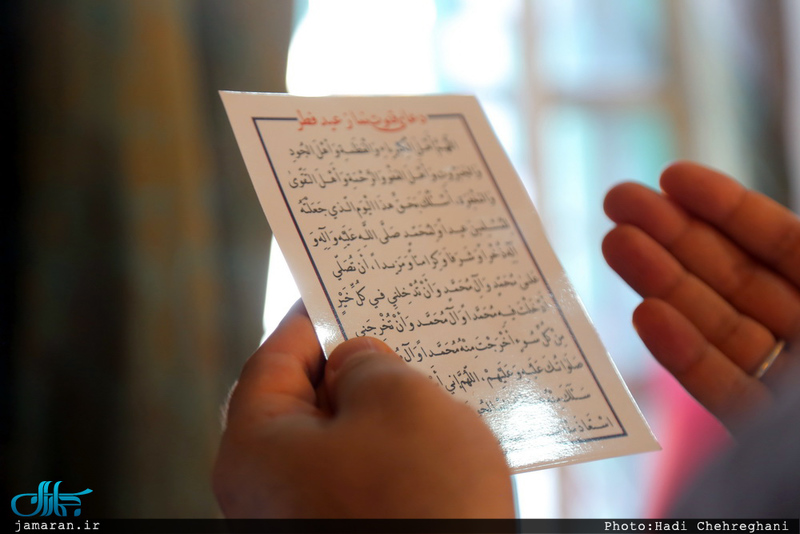 دعای قنوت نماز عید فطر
اللهم أهل الكبرياء والعظمة وأهل الجود
والجبروت وأهل العفو والرحمة وأهل التقوى
والمغفرة، أسئلك بحق هذا اليوم الذي جعلته
للمسلمين عيداً و لمحمد صلى الله عليه وآله و
ذخراً و شرفاً و كرامتاً و مزيداً، أن تصلي
على محمد وآل محمد وأن تدخلني في كل خير
أدخلت فيه محمداً وآل محمد وأن تخرجني
من كل سوء أخرجت منه محمداً وآل
صلواتك عليه وعليهم، اللهم إني
جماران
jamaran.ir
Photo:Hadi Chehreghani